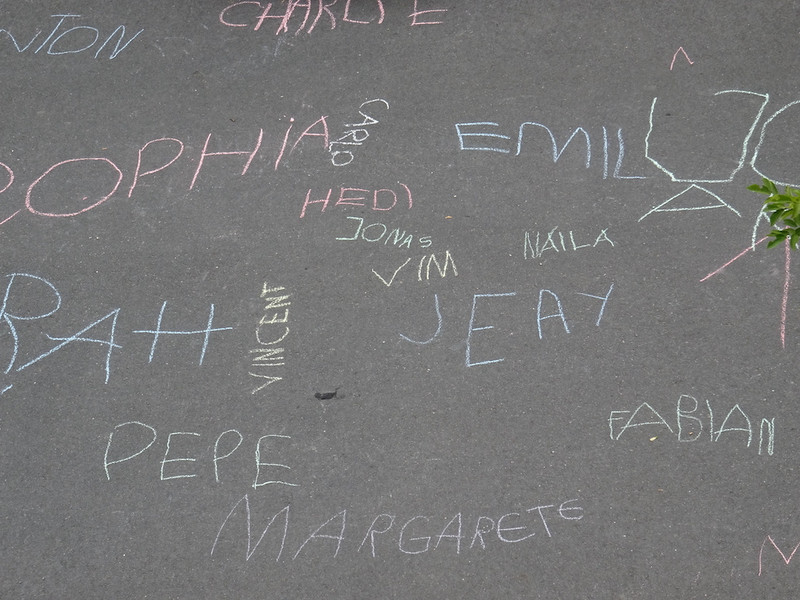 CHARLIE
NTON
CARLO
EMIL
OPHIA
HEDI
JONAS
NAILA
VIM
VINCENT
JEAY
RAH
FABIAN
PEPE
MARGARETE